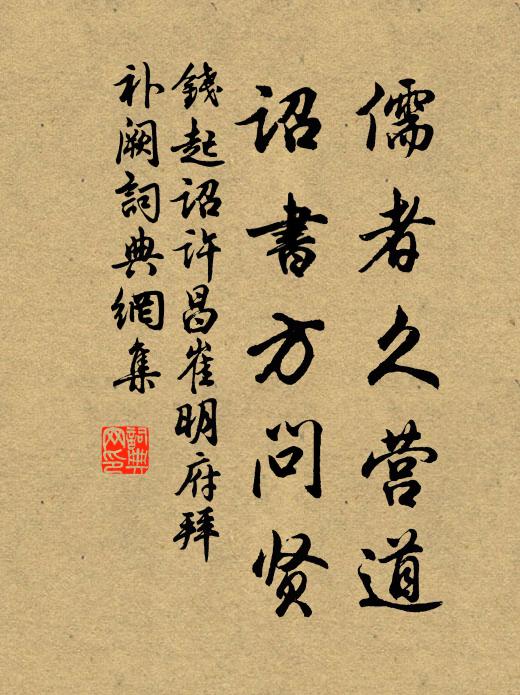 儒者久营道
诏書方问贤
錢起诏许昌崔明府拜
补阙詞典網集
詞典
网印